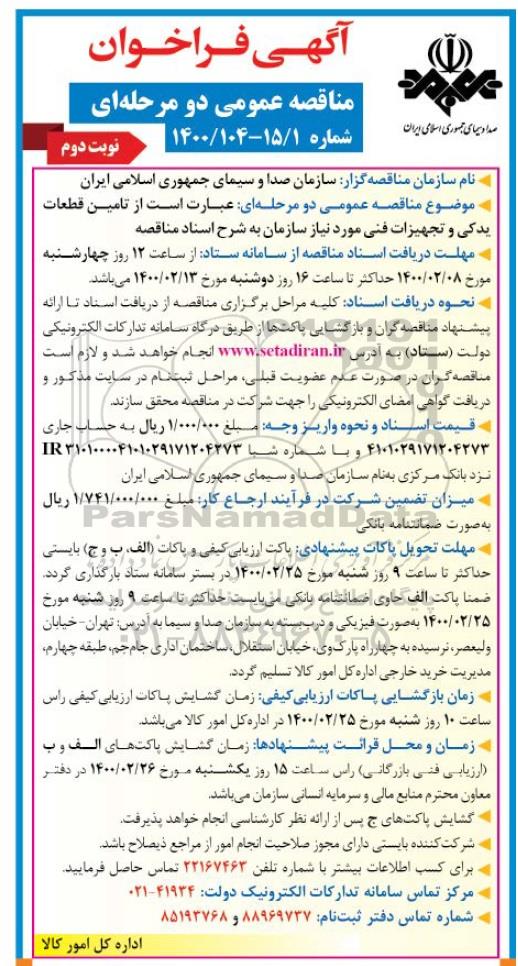 آگهـی فـراخـوان
صدا و سیمای جمهوری اسلامی ایران
مناقصه عمومی دو مرحله‌ای
شماره ۱۵/۱-۱۴۰۰/۱۰۴
نوبت دوم
نام سازمان مناقصه‌گزار: سازمان صدا و سیمای جمهوری اسلامی ایران
موضوع مناقصه عمومی دو مرحله‌ای: عبارت است از تامین قطعات
یدکی و تجهیزات فنی مورد نیاز سازمان به شرح اسناد مناقصه
مهلت دریافت اسناد مناقصه از سامانه ستاد: از ساعت ۱۲ روز چهارشنبه
مورخ ۱۴۰۰/۰۲/۰۸ حداکثر تا ساعت ۱۶ روز دوشنبه مورخ ۱۴۰۰/۰۲/۱۳ می‌باشد.
نحوه دریافت اسناد: کلیه مراحل برگزاری مناقصه از دریافت اسناد تا ارائه
پیشنهاد مناقصه گران و بازگشایی پاکت‌ها از طریق درگاه سامانه تدارکات الکترونیکی
دولت (ستاد) به آدرس www.setadiran.ir انجام خواهد شد و لازم است
مناقصه گران در صورت عدم عضویت قبلی، مراحل ثبتنام در سایت مذکور و
دریافت گواهی امضای الکترونیکی را جهت شرکت در مناقصه محقق سازند.
قیمت اسناد و نحوه واریز وجه: مبلغ ۱/۰۰۰/۰۰۰ ریال به حساب جاری
۴۱۰۱۰۲۹۱۷۱۲۰۴۲۷۳ و با شماره شبا IR ۳۱۰۱۰۰۰۰۴۱۰۱۰۲۹۱۷۱۲۰۴۲۷۳
نزد بانک مرکزی به‌نام سازمان صدا و سیمای جمهوری اسلامی ایران
میزان تضمین شرکت در فرآیند ارجاع کار: مبلغ ۱/۷۴۱/۰۰۰/۰۰۰ ریال
به‌صورت ضمانتنامه بانکی
مهلت تحویل پاکات پیشنهادی: پاکت ارزیابی کیفی و پاکات (الف، ب و ج) بایستی
حداکثر تا ساعت ۹ روز شنبه مورخ ۱۴۰۰/۰۲/۲۵ در بستر سامانه ستاد بارگذاری گردد.
ضمنا پاکت الف حاوی ضمانتنامه بانکی می‌بایست حداکثر تا ساعت ۹ روز شنبه مورخ
۱۴۰۰/۰۲/۲۵ به‌صورت فیزیکی و دربسته به سازمان صدا و سیما به آدرس: تهران- خیابان
ولیعصر، نرسیده به چهارراه پارک وی، خیابان استقلال، ساختمان اداری جام‌جم، طبقه چهارم،
مدیریت خرید خارجی اداره کل امور کالا تسلیم گردد.
زمان بازگشایی پاکات ارزیابی کیفی: زمان گشایش پاکات ارزیابی کیفی راس
ساعت ۱۰ روز شنبه مورخ ۱۴۰۰/۰۲/۲۵ در اداره کل امور کالا می‌باشد.
زمان و محل قرائت پیشنهادها: زمان گشایش پاکت‌های الف و ب
(ارزیابی فنی بازرگانی) راس ساعت ۱۵ روز یکشنبه مورخ ۱۴۰۰/۰۲/۲۶ در دفتر
معاون محترم منابع مالی و سرمایه انسانی سازمان می‌باشد.
گشایش پاکت‌های ج پس از ارائه نظر کارشناسی انجام خواهد پذیرفت.
شرکت‌کننده بایستی دارای مجوز صلاحیت انجام امور از مراجع ذیصلاح باشد.
برای کسب اطلاعات بیشتر با شماره تلفن ۲۲۱۶۷۴۶۳ تماس حاصل فرمایید.
مرکز تماس سامانه تدارکات الکترونیک دولت: ۴۱۹۳۴-۰۲۱
شماره تماس دفتر ثبت‌نام: ۸۸۹۶۹۷۳۷ و ۸۵۱۹۳۷۶۸
اداره کل امور کالا
ParsNamadData
۰۲۱-۸۸۳۴۹۶۷۰-۵